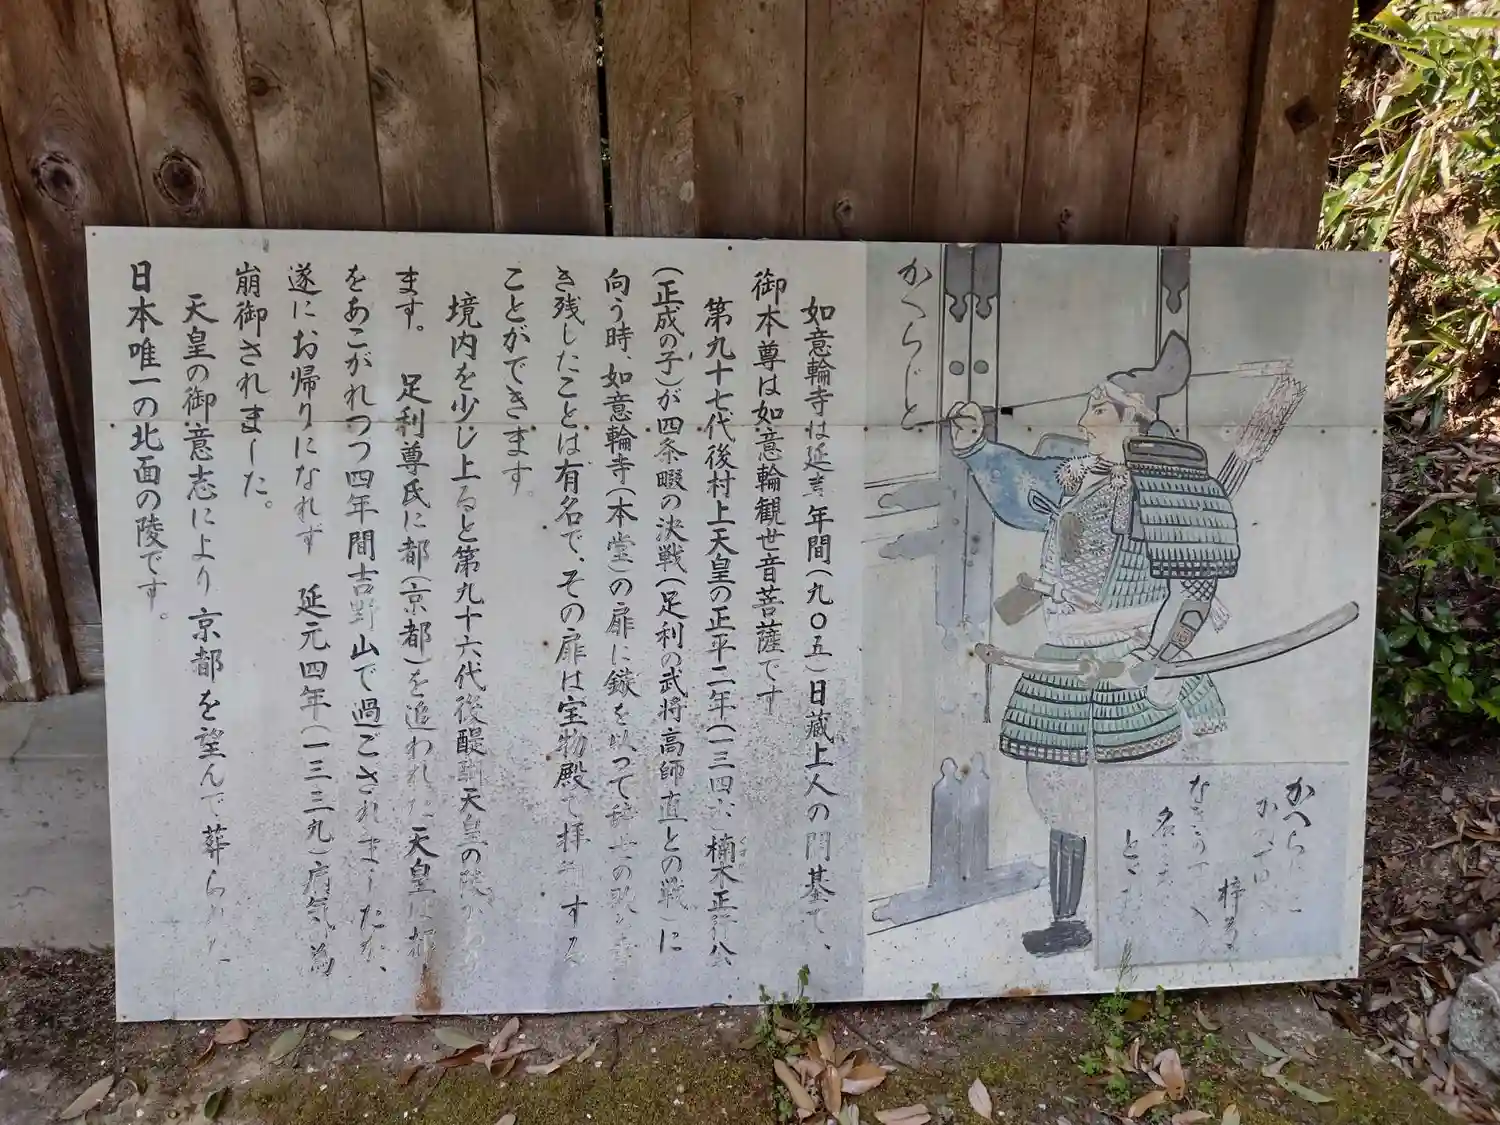 如意輪寺は延喜年間(九〇五)日蔵上人の開基で、
御本尊は如意輪観世音菩薩です
第九十七代後村上天皇の正平二年(一三四六 楠木正行公
(正成の子)が四条畷の決戦(足利の武将高師直との戦)に
向う時、如意輪寺(本堂)の扉に鏃を以って辞世の歌を書
き残したことは有名で、その扉は宝物殿で拝観する
ことができます。
境内を少し上ると第九十六代後醍醐天皇の陵があり
ます。 足利尊氏に都(京都)を追われた天皇は都
をあこがれつつ四年間吉野山で過ごされましたが、
遂にお帰りになれず 延元四年(一三三九)病気の為
崩御されました。
天皇の御意志により京都を望んで葬られた
日本唯一の北面の陵です。
かへらじと
かへら
かね
梓弓
なき
名
とどむ